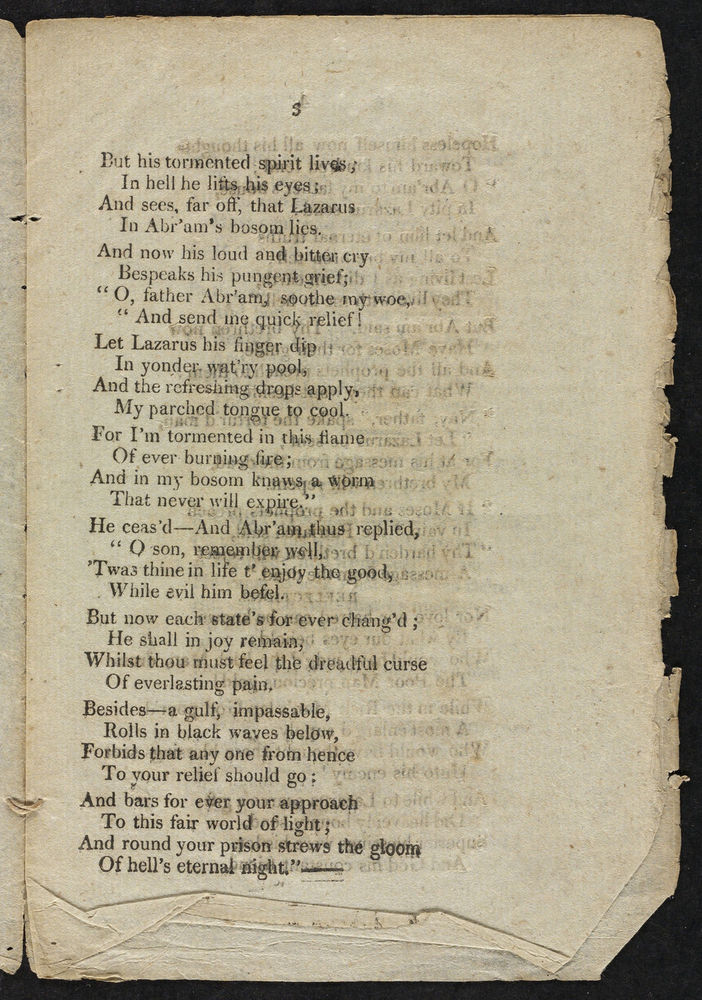 3
But his tormented spirit lives;
In hell he lifts his eyes;
And sees, far off, that Lazarus
In Abr'am's bosom lies.
And now his loud and bitter cry
Bespeaks his pungent grief;
"O, father Abr'am, soothe my woe,
"And send me quick relief!
Let Lazarus his finger dip
In yonder wat'ry pool,
And the refreshing drops apply,
My parched tongue to cool.
For I'm tormented in this flame
Of ever burning fire;
And in my bosom knaws a worm
That never will expire."
He ceas'd—And Abr'am thus replied,
"O son, remember well,
'Twas thine in life t' enjoy the good,
While evil him befel.
But now each state's for ever chang'd;
He shall in joy remain,
Whilst thou must feel the dreadful curse
Of everlasting pain.
Besides—a gulf, impassable,
Rolls in black waves below,
Forbids that any one from hence
To your relief should go:
And bars for ever your approach
To this fair world of light;
And round your prison strews the gloom
Of hell's eternal night."—